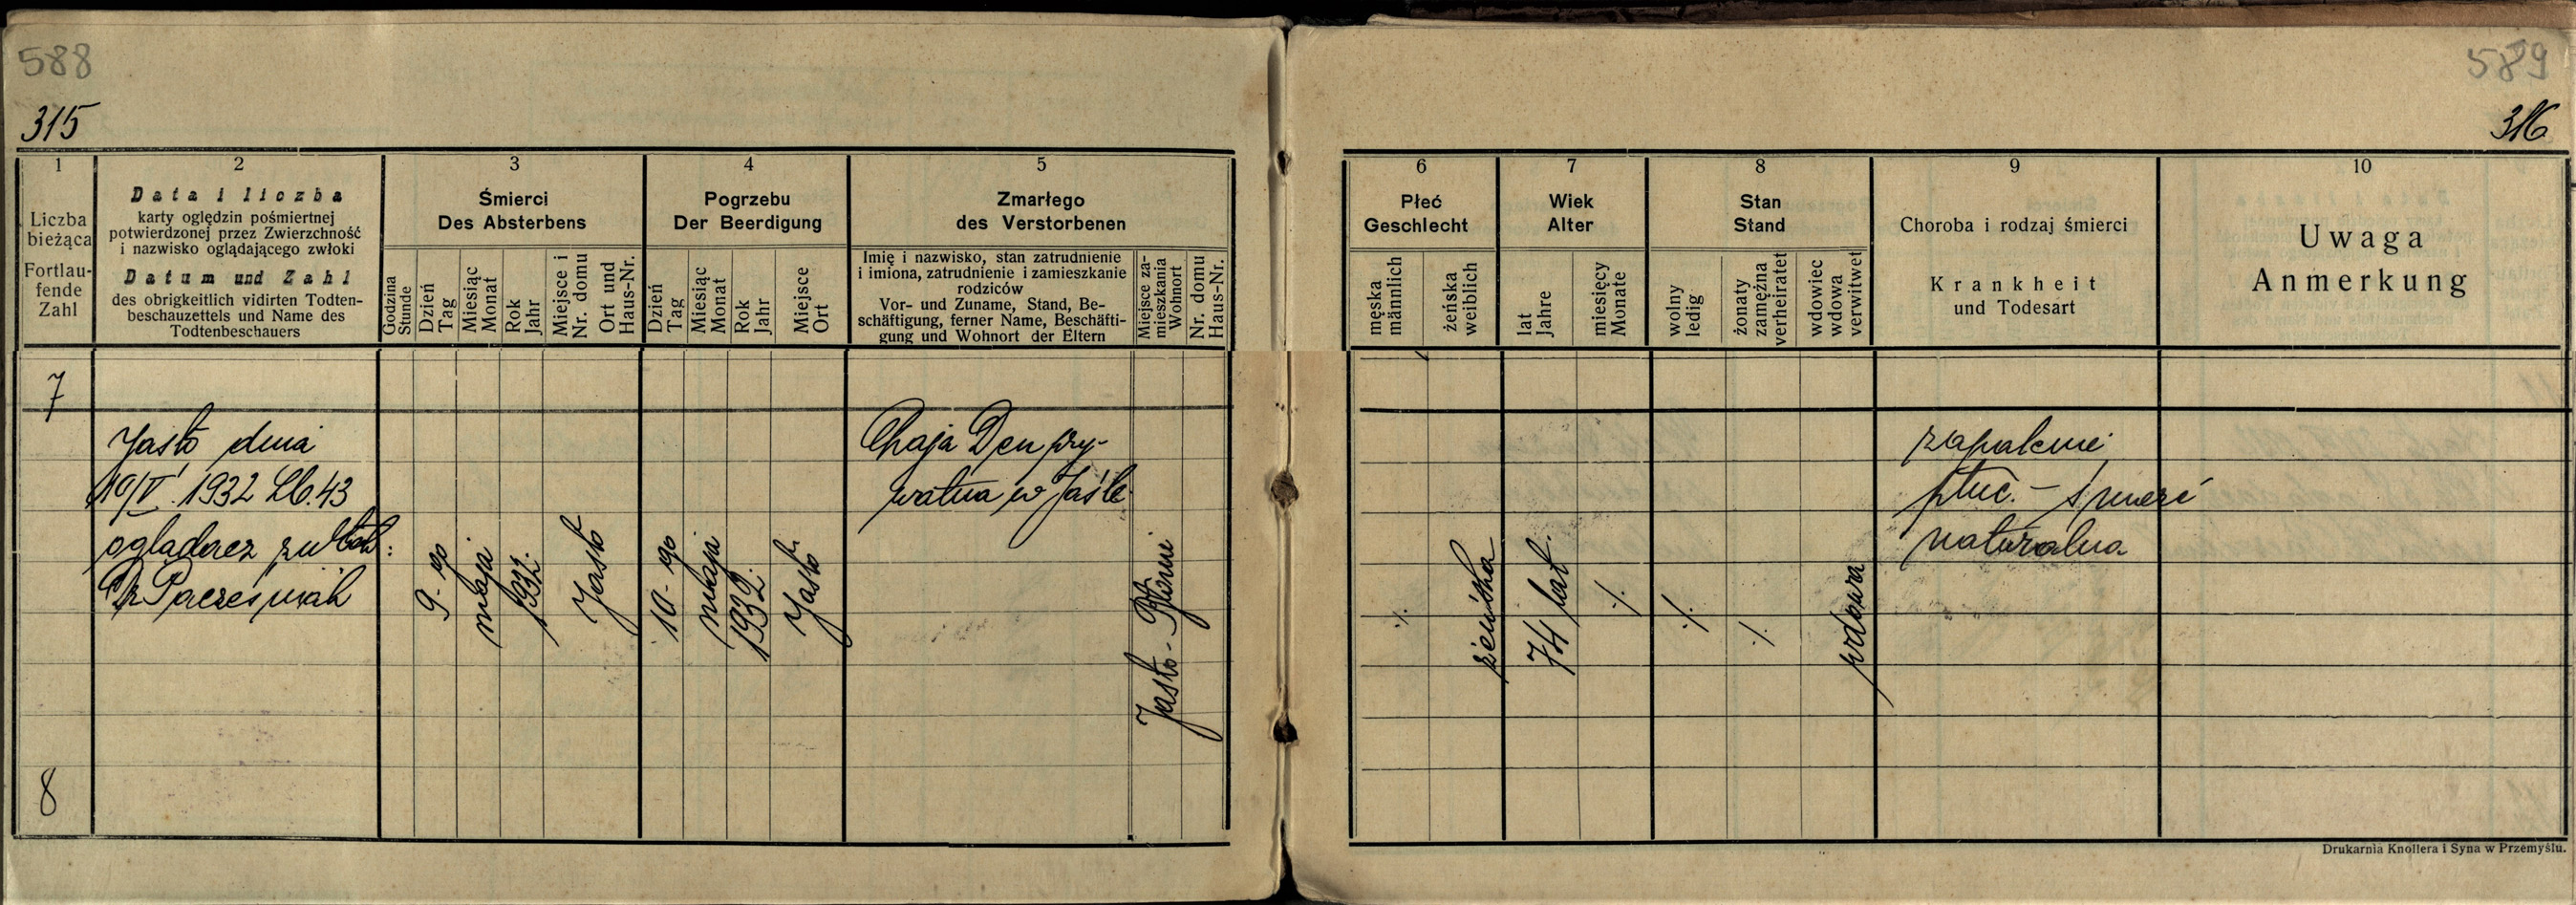 588
589
315
316
1
Liczba
bieżąca
Fortlau-
fende
Zahl
2
Data i liczba
karty oględzin pośmiertnej
potwierdzonej przez Zwierzchność
i nazwisko oglądającego zwłoki
Datum und Zahl
des obrigkeitlich vidirten Todten-
beschauzettels und Name des
Todtenbeschauers
3
Śmierci
Des Absterbens
Godzina
Stunde
Dzień
Tag
Miesiąc
Monat
Rok
Jahr
Miejsce i
Nr. domu
Ort und
Haus-Nr.
4
Pogrzebu
Der Beerdigung
Dzień
Tag
Miesiąc
Monat
Rok
Jahr
Miejsce
Ort
5
Zmarłego
des Verstorbenen
Imię i nazwisko, stan zatrudnienie
i imiona, zatrudnienie i zamieszkanie
rodziców
Vor- und Zuname, Stand, Be-
schäftigung, ferner Name, Beschäfti-
gung und Wohnort der Eltern
Miejsce za-
mieszkania
Wohnort
Nr. domu
Haus-Nr.
6
Płeć
Geschlecht
męska
männlich
żeńska
weiblich
7
Wiek
Alter
lat
Jahre
miesięcy
Monate
8
Stan
Stand
wolny
ledig
żonaty
zamężna
verheiratet
wdowiec
wdowa
verwitwet
9
Choroba i rodzaj śmierci
Krankheit
und Todesart
10
Uwaga
Anmerkung
7
Jasło dnia
10/V. 1932 Lb. 43
oglądacz zwłok:
Dr Pacześniak
9-go
maja
1932.
Jasło
10-go
maja
1932.
Jasło
Chaja Den pry-
watna w Jaśle
Jasło-
./.
żeńska
74 lat.
./.
./.
./.
wdowa
zapalenie
płuc. - śmierć
naturalna
8
Drukarnia Knollera i Syna w Przemyślu.